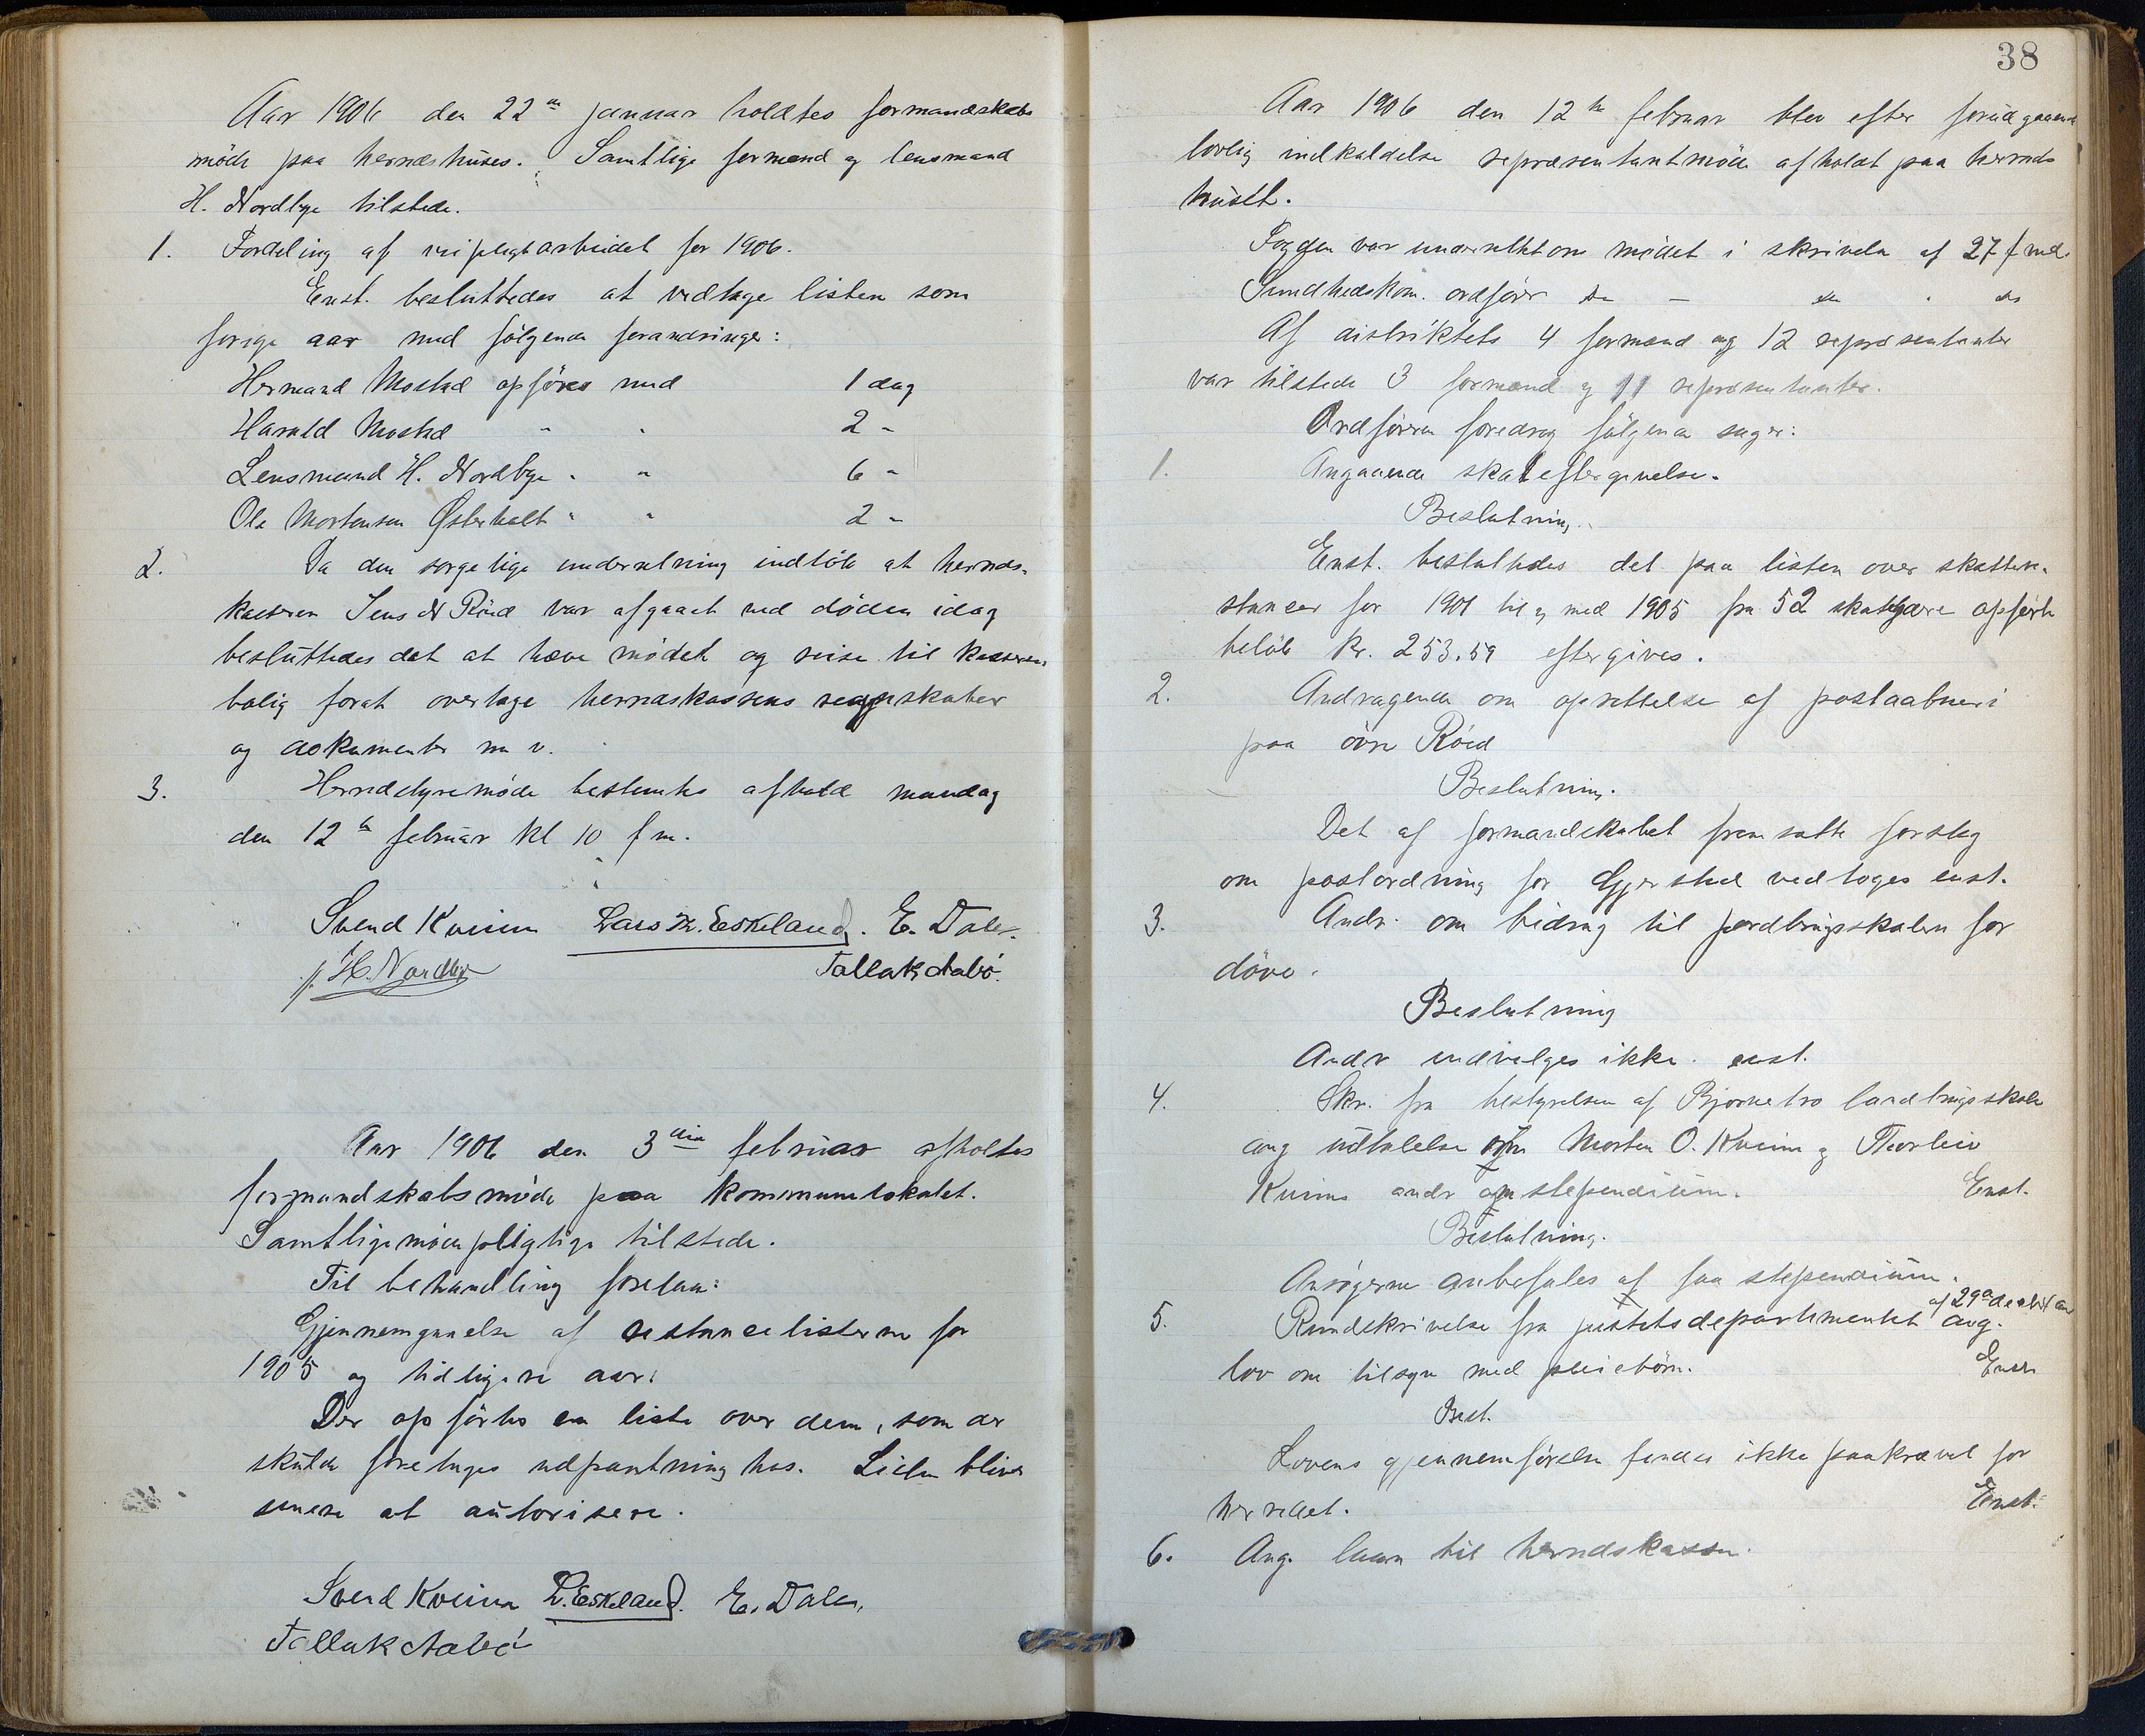 Aar 1906 den 22de januar holdtes formandskabs
møde paa herredshuset. Samtlige formænd og lensmand
H. Nordbye tilstede.
1. Fordeling af veipligtarbeidet for 1906.
Enst. besluttedes at vedtage listen som
forige aar med følgende forandringer:
Hermand Mostad opføres med 1 dag
Harald Mostad " " 2 "
Lensmand H. Nordbye " " 6 "
Ole Mortensen Østerholt " " 2 "
2. Da den sorgelige underretning indløb at herreds-
kasseren Jens N Röed var afgaaet ved døden idag
besluttedes det at hæve mødet og reise til kasserens
bolig forat overtage herredskassens regnskaber
og dokumenter m v.
3. Herredstyremøde bestemtes afholdt mandag
den 12te februar kl 10 f m.
Svend Kveim Lars Eskeland. E. Dalen
H. Nordbye Tallak Aabö.
Aar 1906 den 3die februar afholtes
formandskabsmøde paa kommunelokalet.
Samtlige mødepligtige tilstede.
Til behandling forelaa:
Gjennemgaaelse af restancelisterne for
1905 og tidligere aar.
Der opførtes en liste over dem, som der
skulde foretages udpantning hos. Listen bliver
senere at autorisere.
Svend Kveim L. Eskeland. E. Dalen,
Tallak Aabö
38
Aar 1906 den 12te februar blev efter forudgaaende
lovlig indkaldelse repræsentantmøde afholdt paa herreds
huset.
Fogden var underrettet om mødet i skrivelse af 27 f md.
Sundhedskom. ordfører do — do " do
Af distriktets 4 formænd og 12 repræsentanter
var tilstede 3 formænd og 11 repræsentanter.
Ordføreren foredrog følgende sager:
1. Angaaende skatteftergivelse.
Beslutning.
Enst. besluttedes det paa listen over skattere-
stancer for 1901 til og med 1905 fra 52 skatydere opførte
beløb kr. 253.59 eftergives.
2. Andragende om oprettelse af postaabneri
paa övre Röed
Beslutning.
Det af formandskabet fremsatte forslag
om postordning for Gjerstad vedtoges enst.
3. Andr. om bidrag til jordbrugsskolen for
döve.
Beslutning
Andr indvilges ikke. enst.
4. Skr. fra bestyrelsen af Bjornebo landbrugsskole
ang udtalelse om Morten O. Kveim og Thorleiv
Kveims andr om stependium. Enst.
Beslutning.
Ansögerne anbefales at faa stependium.
5. Rundskrivelse fra justitsdepartementet af 29de decbr f aar ang.
lov om tilsyn med pleiebørn. Enst.
Besl.
Lovens gjennemførelse findes ikke paakrævet for
herredet. Enst.
6. Ang. laan til herredskassen.